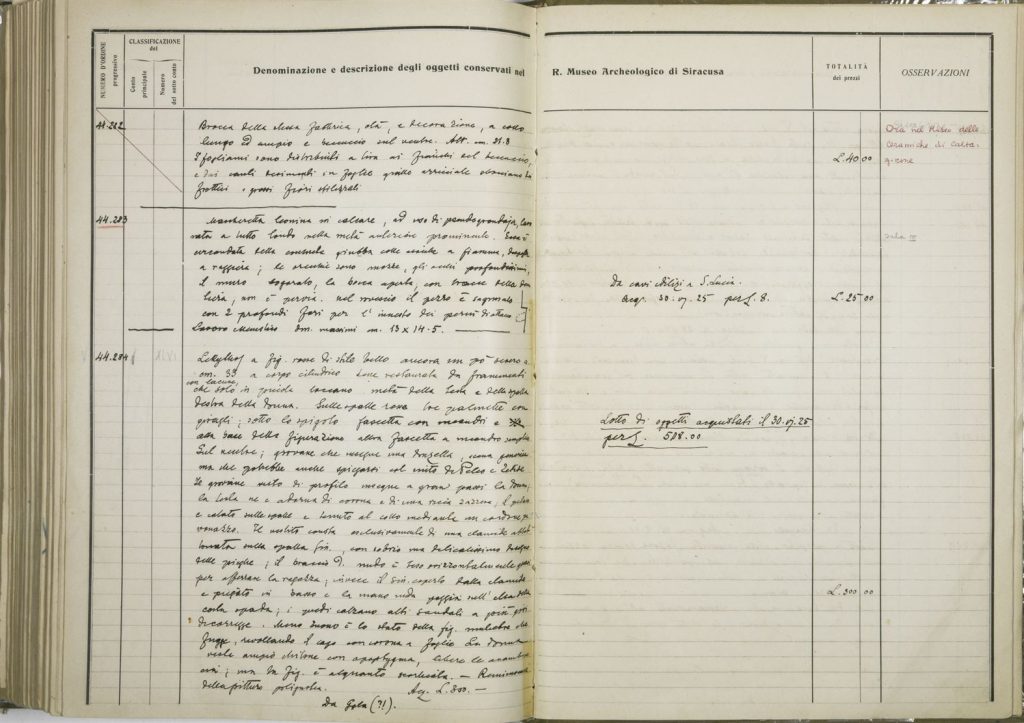 NUMERO D'ORDINE progressivo
CLASSIFICAZIONE del
Conto principale
Numero del sotto conto
Denominazione e descrizione degli oggetti conservati nel R. Museo Archeologico di Siracusa
TOTALITÀ dei prezzi
OSSERVAZIONI
44.282
Brocca della stessa fabbrica, età, e decorazione, a collo
lungo ed ampio e sul ventre. Alt. cm. 21.8
I fogliami sono distribuiti
e dai
grossi fiori stilizzati
L. 40 00
Ora nel Museo delle
Ceramiche di Calta-
girone
44.283
Mascheretta leonina in calcare, ad uso di pseudogrondaja, lavo
rata a tutto tondo nella metà anteriore prominente. Essa è
circondata della consueta giubba colle ciocche a fiamma, disposte
a raggiera; le orecchie sono mozze, gli occhi profondissimi,
il muso, la bocca aperta, con tracce della den
tiera, non è pervia. Nel rovescio il pezzo è sagomato
con 2 profondi fori per l'innesto dei perni di attacco
Lavoro dm. massimi m. 13 x 14.5.
Da cavi edilizi a S. Lucia.
Acq. 30.VI.25 per L. 8.
L. 25 00
sala IX
44.284
Lekythos a fig. rosse di stile bello ancora un pò severo a.
cm. 33 a corpo cilindrico bene restaurata da frammenti
con lacune,
che solo in piccola toccano metà della testa e della spalla
destra della donna. Sulle spalle rosse tre palmette con
giragli; sotto lo spigolo fascetta con meandri e
alla base della figurazione altra fascetta a meandro semplice
Sul ventre: giovane che insegue una donzella, scena generica
ma che potrebbe anche spiegarsi col mito di Peleo e Tetide
Il giovane visto di profilo insegue a gran passi la donna;
la testa ne è adorna di corona e di una riccia zazzera, il petaso
è calato sulle spalle e tenuto al collo mediante un cordone pa
vonazzo. Il vestito consta esclusivamente di una clamide abbot
tonata sulla spalla sin., con sobrio ma delicatissimo disegno
delle pieghe; il braccio d. nudo è teso orizzontalmente quasi
per afferrare la ragazza; invece il sin. coperto dalla clamide
è piegato in basso e la mano nuda poggia sull'elsa della
corta spada; i piedi calzano alti sandali a
di corregge. Meno buono è lo stato della fig. muliebre che
fugge, rivoltando il capo con corona a foglie. La donna
veste ampio chitone con apoptygma, libere le avambrac
cia; ma la fig. è alquanto mortificata. — Reminiscenza
della pittura polignotea. Acq. L. 300. —
Da Gela (?!).
Lotto di oggetti acquistati il 30.VI.25
per L. 508.00
L. 300 00